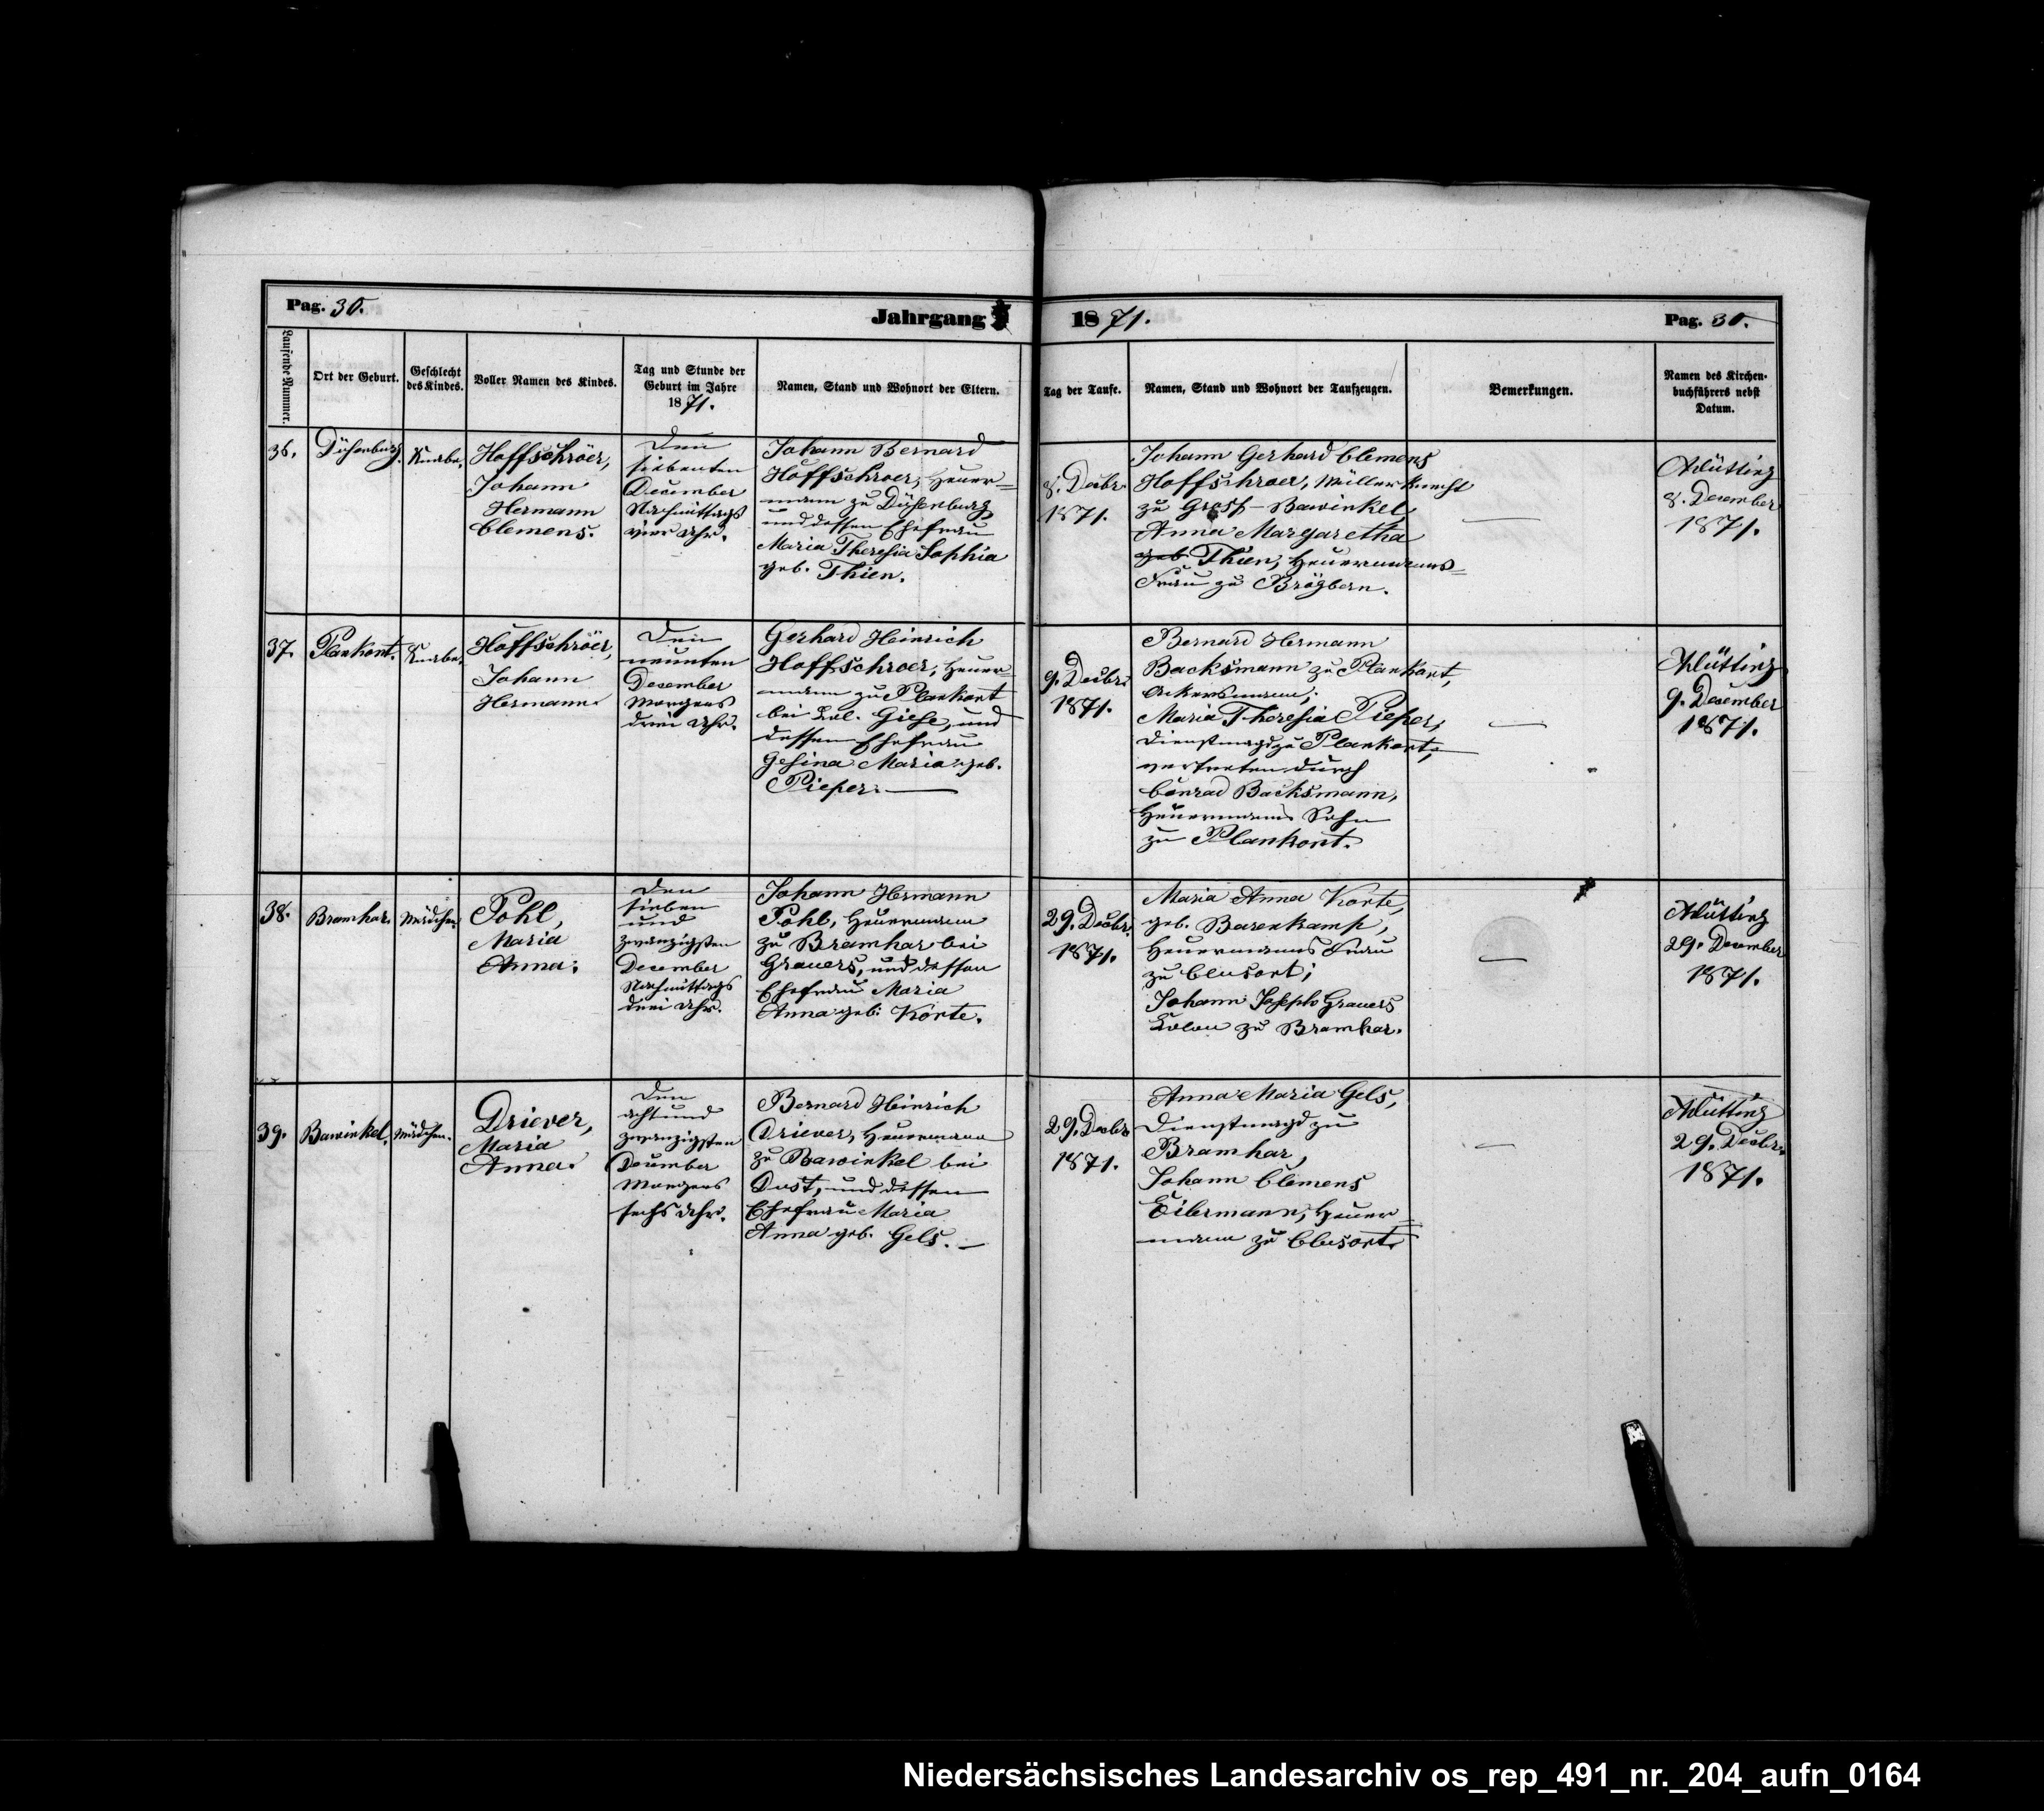 Pag. 30.
Jahrgang
1871.
Pag. 30.
Laufende Nummer.
Ort der Geburt.
Geschlecht
des Kindes.
Voller Namen des Kindes.
Tag und Stunde der
Geburt im Jahre
1871.
Namen, Stand und Wohnort der Eltern.
Tag der Taufe.
Namen, Stand und Wohnort der Taufzeugen.
Bemerkungen.
Namen des Kirchen-
buchführers nebst
Datum.
36.
Duisenburg.
Knabe.
Hoffschröer,
Johann
Hermann
Clemens.
Den
siebenten
December
Nachmittags
vier Uhr.
Johann Bernard
Hoffschroer, Heuer=
mann zu Duisenburg
und dessen Ehefrau
Maria Theresia Sophia
geb. Thien.
8. Decbr.
1871.
Johann Gerhard Clemens
Hoffschroer, Müllerknecht
zu Gross-Bawinkel,
Anna Margaretha
geb. Thien, Heuermanns=
Frau zu Brögbern.
—
8. December
1871.
37.
Plankort.
Knabe.
Hoffschröer,
Johann
Hermann.
Den
neunten
December
Morgens
drei Uhr.
Gerhard Heinrich
Hoffschroer, Heuer=
mann zu Plankort
bei Col. Giese, und
dessen Ehefrau
Gesina Maria geb.
Pieper. —
9. Decbr.
1871.
Bernard Hermann
Backsmann zu Plankort,
Ackersmann;
Maria Theresia Pieper,
Dienstmagd zu Plankort,
vertreten durch
Conrad Backsmann,
Heuermanns Sohn
zu Plankort.
—
9. December
1871.
38.
Bramhar.
Mädchen.
Pohl,
Maria
Anna.
Den
sieben
und
zwanzigsten
December
Nachmittags
drei Uhr.
Johann Hermann
Pohl, Heuermann
zu Bramhar bei
Gravers, und dessen
Ehefrau Maria
Anna geb. Korte.
29. Decbr.
1871.
Maria Anna Korte,
geb. Barenkamp,
Heuermanns Frau
zu Clusort;
Johann Joseph Gravers
Colon zu Bramhar.
—
29. December
1871.
39.
Bawinkel.
Mädchen.
Driever,
Maria
Anna.
Den
acht und
zwanzigsten
December
Morgens
sechs Uhr.
Bernard Heinrich
Driever, Heuermann
zu Bawinkel bei
Dust, und dessen
Ehefrau Maria
Anna geb. Gels. —
29. Decbr.
1871.
Anna Maria Gels,
Dienstmagd zu
Bramhar,
Johann Clemens
Eilermann, Heuer=
mann zu Clusort.
—
29. Decbr.
1871.
Niedersächsisches Landesarchiv os_rep_491_nr._204_aufn_0164